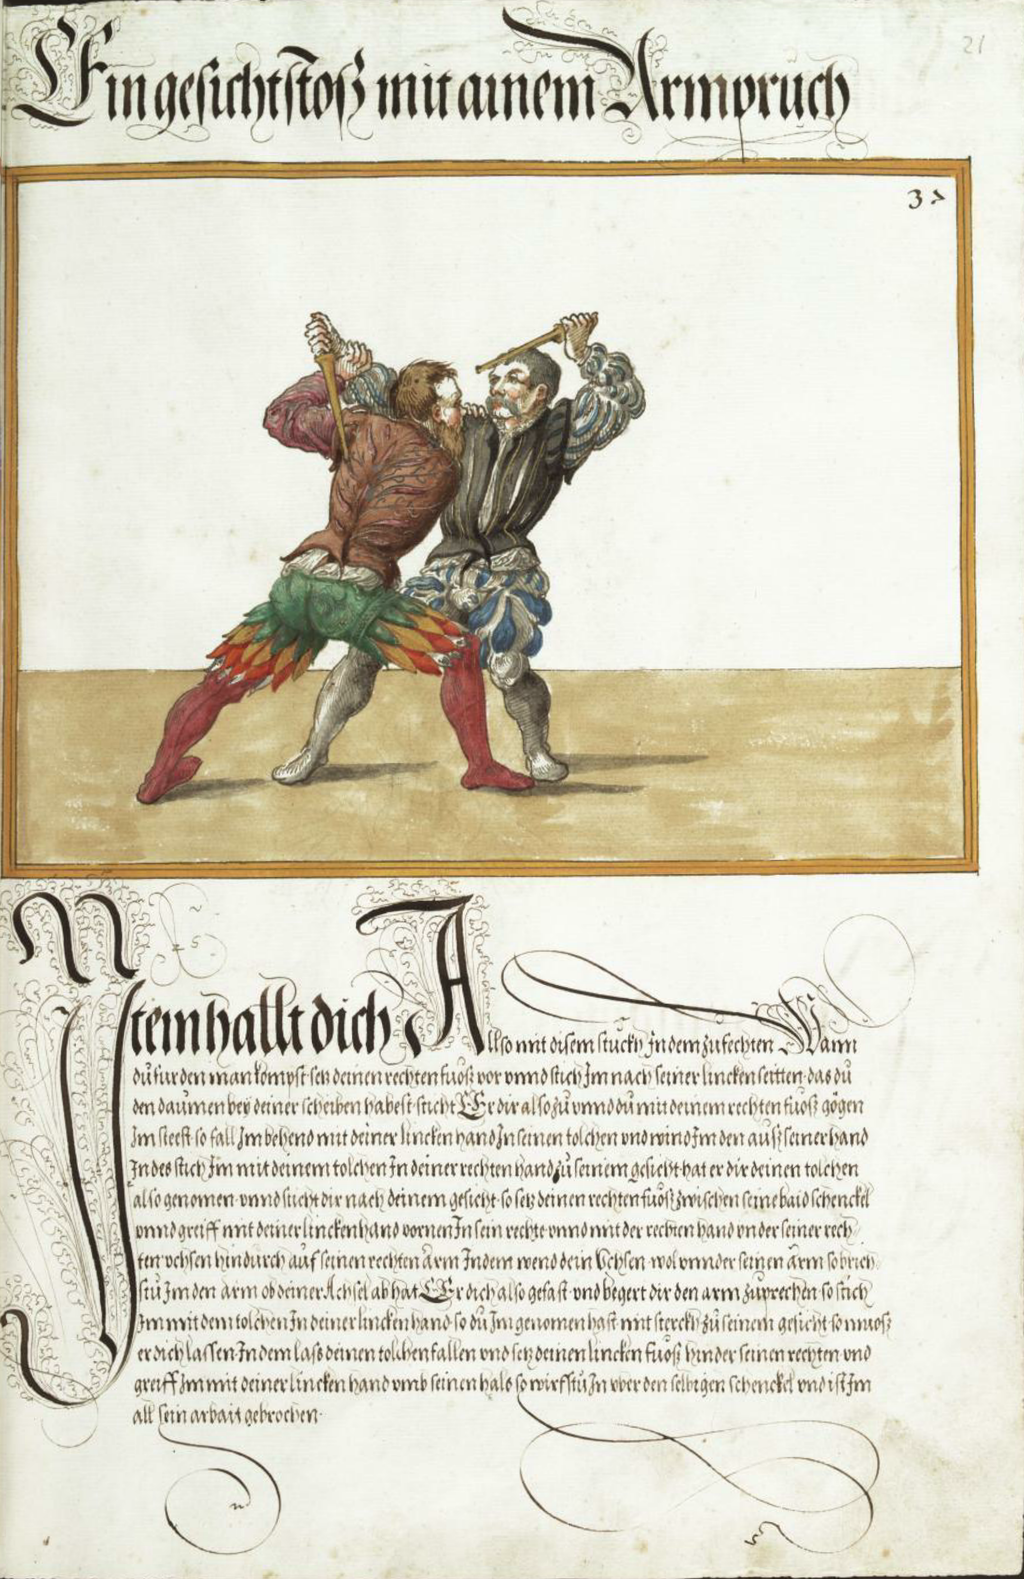 21
Ein gesichtstoß mit ainem Armpruch
37
Item hallt dich Allso mit disem stuckh Jn dem zufechten Wann
du fur den man kompst setz deinen rechten fuoß vor vnnd stich Jm nach seiner lincken seitten das du
den daumen bey deiner scheiben habest sticht Er dir also zu vnnd du mit deinem rechten fuoß gögen
Jm steest so fall Jm behend mit deiner lincken hand Jn seinen tolchen vnd wind Jm den auß seiner hand
Jn des stich Jm mit deinem tolchen Jn deiner rechten hand zu seinem gesicht hat er dir deinen tolchen
also genomen vnnd sticht dir nach deinem gesicht so setz deinen rechten fuoß zwischen seine baid schenckel
vnnd greiff mit deiner lincken hand vornen Jn sein rechte vnnd mit der rechten hand vnder seiner rech
ten vchsen hindurch auf seinen rechten Arm Jndem wend dein Vchsen wol vnnder seinen Arm so brich
stu Jm den arm ob deiner Achsel ab hat Er dich also gefast vnd begert dir den arm zuprechen so stich
Jm mit dem tolchen Jn deiner lincken hand so du Jm genomen hast mit sterckh zu seinem gesicht so muoß
er dich lassen Jndem laß deinen tolchen fallen vnd setz deinen lincken fuoß hinder seinen rechten vnd
greiff Jm mit deiner lincken hand vmb seinen hals so wirfstu Jn vber den selbigen schenckel vnd ist Jm
all sein arbait gebrochen